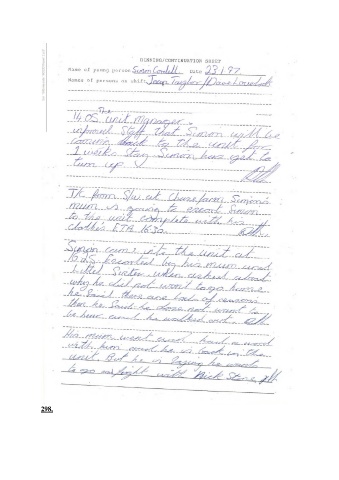 RUNNING/CONTINUATION SHEET
Name of young person Simon Cordell. Date 23.1.97.
Names of persons on shift: Joan Taylor / Dave
The
1405 Unit Manager.
informed Staff that Simon will be
coming back to the unit for
2 weeks stay Simon has yet to
turn up.
TK from S/w at Chase farm Simon's
mum is going to escort Simon
to the unit complete with his
clothes ETA 16.30.
Simon came into the unit at
escorted by his mum and
Sister. when asked about
why he did not want to go home
he Said there are lots of reasons
that he Said he does not want to
be here and he walked out.
His mum went and had a word
with him and he is back in the
unit. But he is saying he wants
to go a fight with
298.